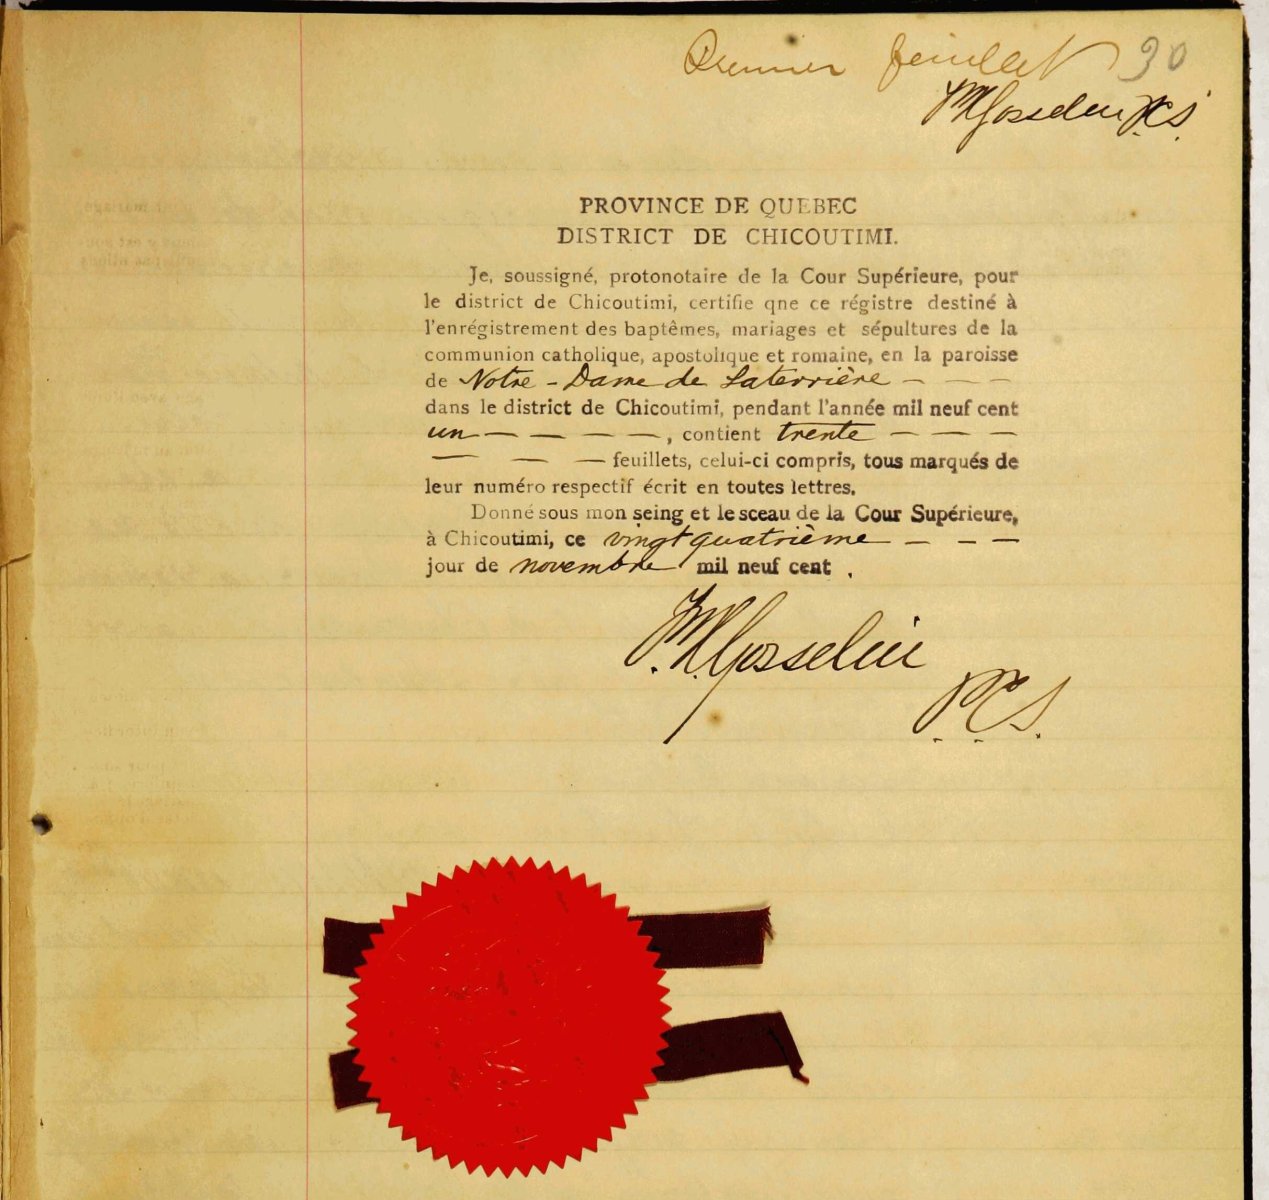 Premier feuillet 30
Gosselin P.C.S.
PROVINCE DE QUEBEC
DISTRICT DE CHICOUTIMI.
Je, soussigné, protonotaire de la Cour Supérieure, pour
le district de Chicoutimi, certifie qne ce régistre destiné à
l'enrégistrement des baptêmes, mariages et sépultures de la
communion catholique, apostolique et romaine, en la paroisse
de Notre-Dame de Laterrière — — —
dans le district de Chicoutimi, pendant l'année mil neuf cent
un — — — — —, contient trente — — —
— — — feuillets, celui-ci compris, tous marqués de
leur numéro respectif écrit en toutes lettres.
Donné sous mon seing et le sceau de la Cour Supérieure,
à Chicoutimi, ce vingt quatrième — — —
jour de novembre mil neuf cent .
Gosselin
P.C.S.